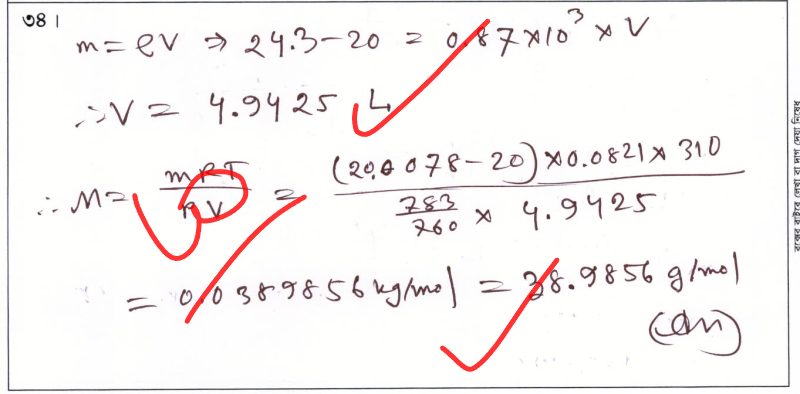 ৩৪।
m = ρv ⇒ 24.3-20 = 0.87×10³ × V
∴ V = 4.9425 L
∴ M = mRT/PV = (20.0078-20)×0.0821×310 / (783/760 × 4.9425)
= 0.0389856 kg/mol = 38.9856 g/mol
(An)